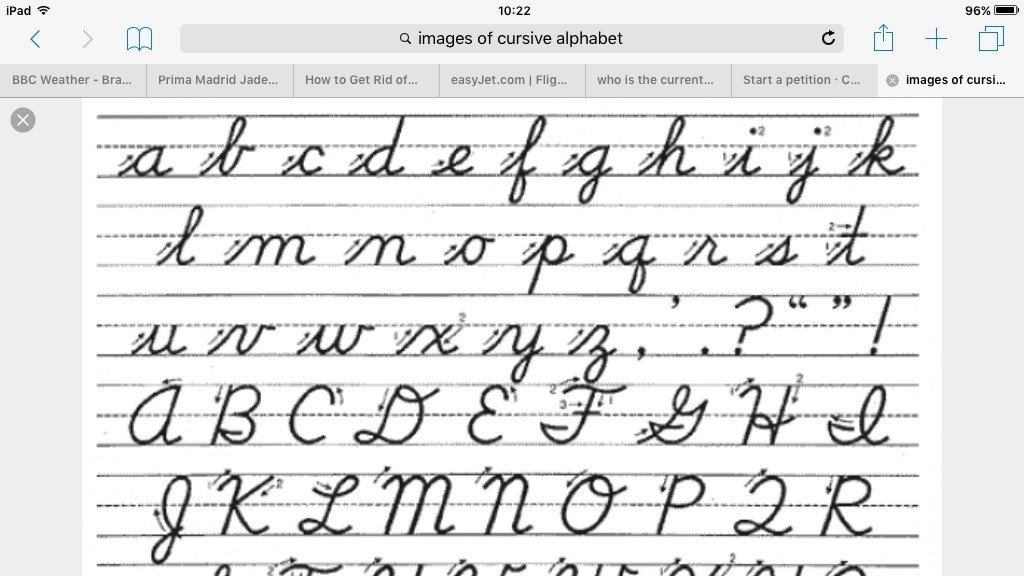 iPad 10:22 96%
images of cursive alphabet
BBC Weather - Bra... Prima Madrid Jade... How to Get Rid of... easyJet.com | Flig... who is the current... Start a petition · C... images of cursi...
a b c d e f g h i j k
l m n o p q r s t
u v w x y z , ' . ? “ ” !
A B C D E F G H I
J K L M N O P Q R